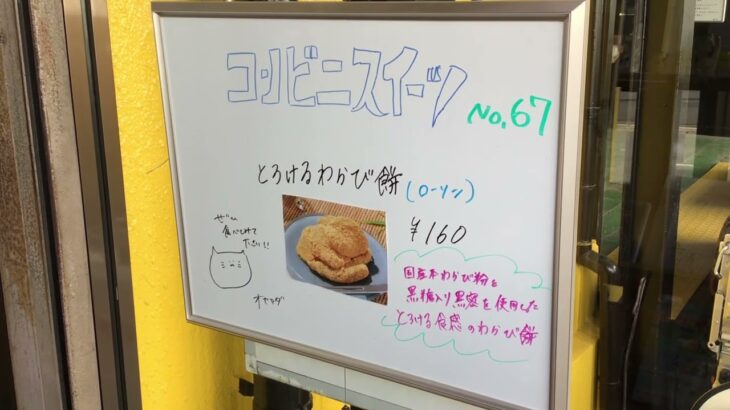 コンビニスイーツ
No.67
とろけるわらび餅(ローソン)
¥160
ぜひ
食べてみて
ださい!
オヤマダ
国産本わらび粉と
黒糖入り黒蜜を使用した
とろける食感のわらび餅